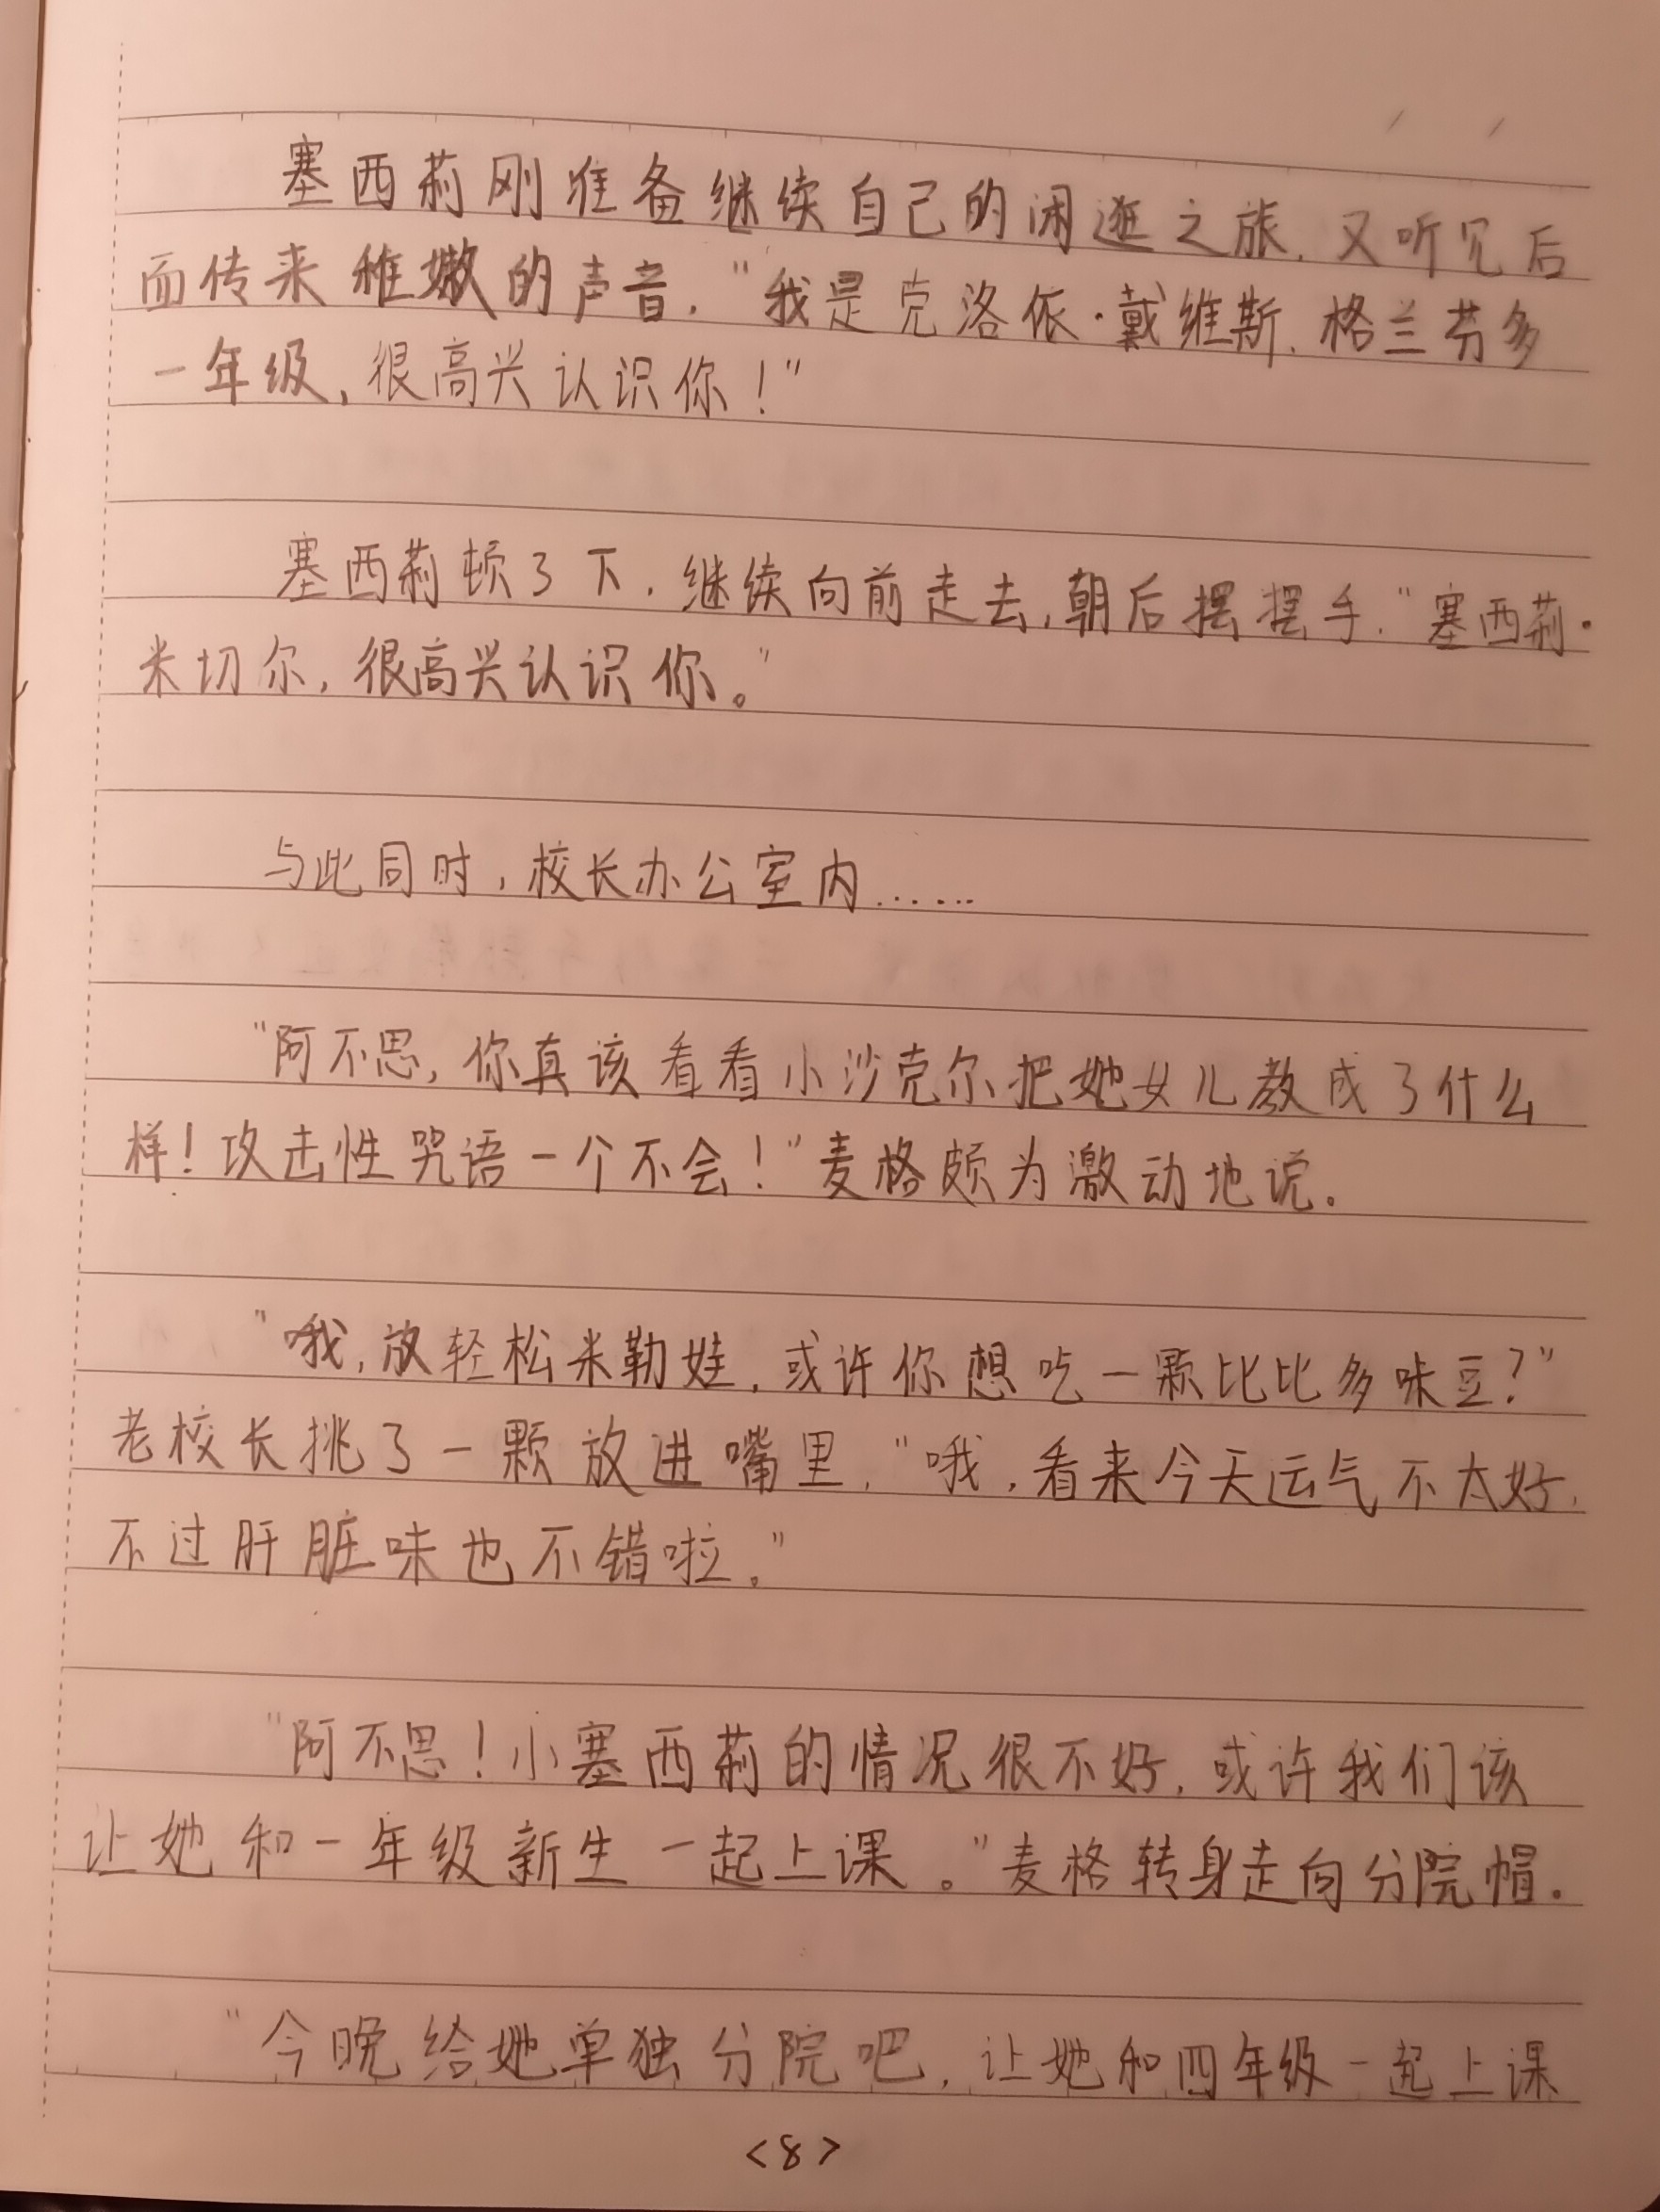 塞西莉刚准备继续自己的闲逛之旅，又听见后
面传来稚嫩的声音，“我是克洛依·戴维斯，格兰芬多
一年级，很高兴认识你！”
塞西莉顿了下，继续向前走去，朝后摆摆手，“塞西莉·
米切尔，很高兴认识你。”
与此同时，校长办公室内……
“阿不思，你真该看看小沙克尔把她女儿教成了什么
样！攻击性咒语一个不会！”麦格颇为激动地说。
“哦，放轻松米勒娃，或许你想吃一颗比比多味豆？”
老校长挑了一颗放进嘴里，“哦，看来今天运气不太好，
不过肝脏味也不错啦。”
“阿不思！小塞西莉的情况很不好，或许我们该
让她和一年级新生一起上课。”麦格转身走向分院帽。
“今晚给她单独分院吧，让她和四年级一起上课
<8>